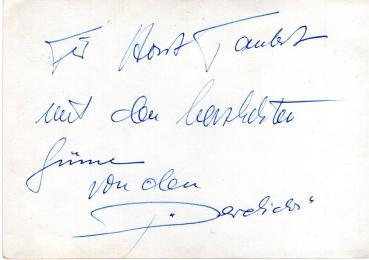 Für Horst Taubert
mit den herzlichsten
Grüssen
von den